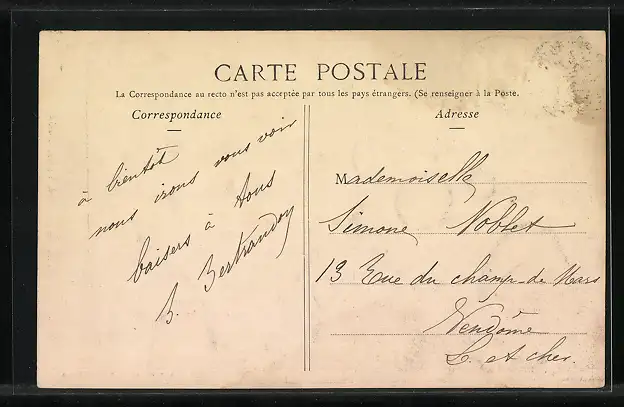 CARTE POSTALE
La Correspondance au recto n'est pas acceptée par tous les pays étrangers. (Se renseigner à la Poste.
Correspondance
à bientôt
nous irons vous voir
baisers à tous
B. Bertrandoy
Adresse
Mademoiselle
Simone Noblet
13 Rue du champ-de Mars
Vendôme
L. et cher.